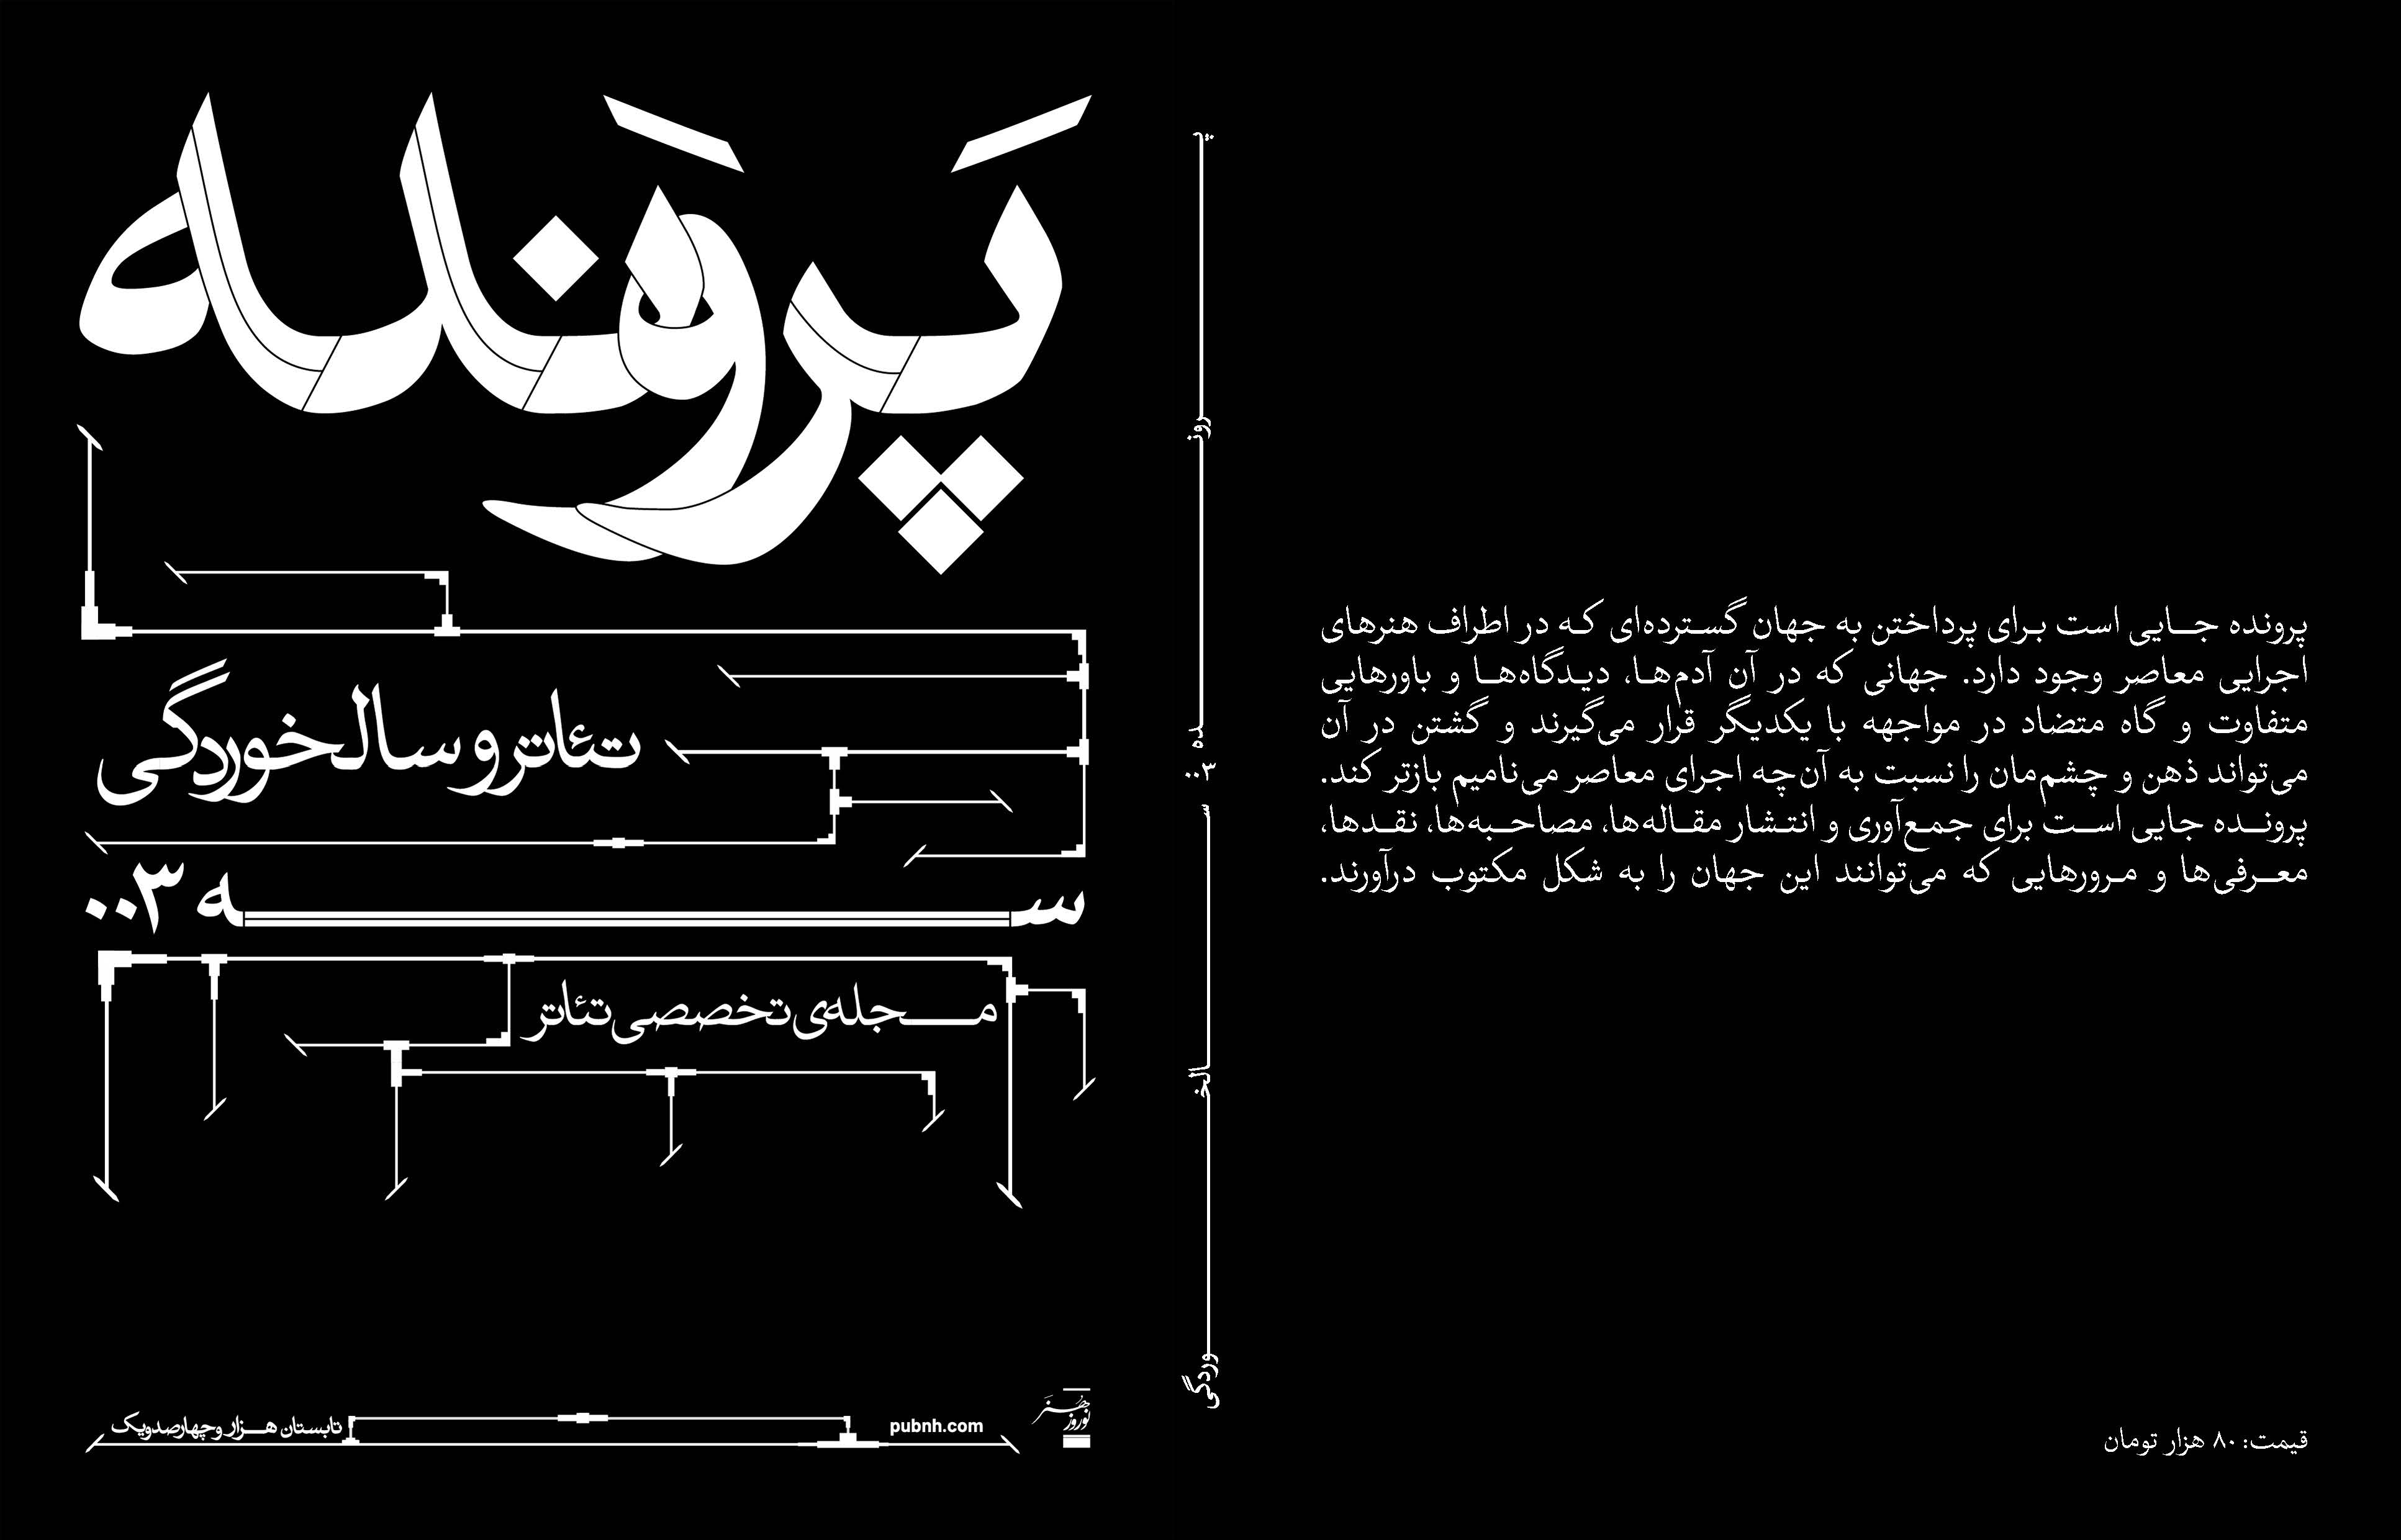 پَروَنده
تئاتر و سالخوردگی
ســه ۰۰۳
مــجله‌ی تخصصی تئاتر
تابستان هــزار و چهارصد و یک
pubnh.com
نوروز هنر
پــرونــده ۰۰۳ ســالخــوردگی
پرونده جــایی است بـرای پرداختن به جهان گسـترده‌ای کـه در اطراف هنرهای
اجرایی معاصر وجود دارد. جهانی که در آن آدم‌هـا، دیـدگاه‌هـا و باورهایی
متفاوت و گاه متضاد در مواجهه با یکدیگر قرار می‌گیرند و گشتن در آن
می‌تواند ذهن و چشم‌مان را نسبت به آن‌چه اجرای معاصر می‌نامیم بازتر کند.
پرونـده جایی اسـت برای جمـع‌آوری و انتـشار مقـاله‌ها، مصاحـبه‌ها، نقـدها،
معـرفی‌ها و مـرورهایی که می‌توانند این جهان را به شکل مکتوب درآورند.
قیمت: ۸۰ هزار تومان